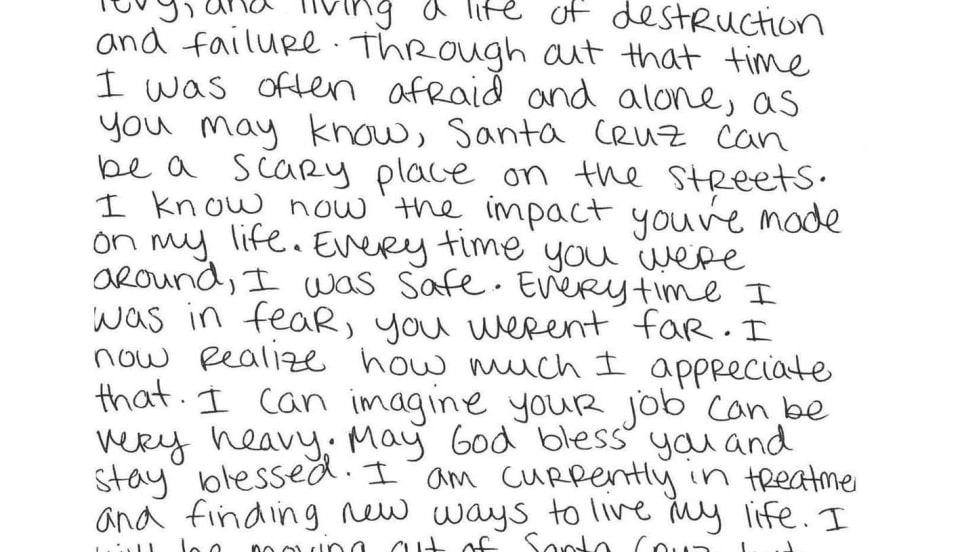 levy, and living a life of destruction
and failure. Through out that time
I was often afraid and alone, as
you may know, Santa Cruz can
be a scary place on the streets.
I know now the impact you've made
on my life. Every time you were
around, I was safe. Everytime I
was in fear, you werent far. I
now realize how much I appreciate
that. I can imagine your job can be
very heavy. May God bless you and
stay blessed. I am currently in treatme
and finding new ways to live my life. I
will be moving out of Santa Cruz but